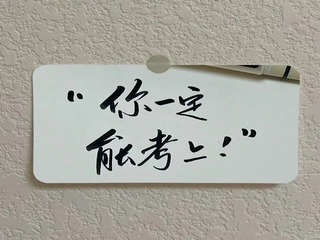 “你一定
能考上!”